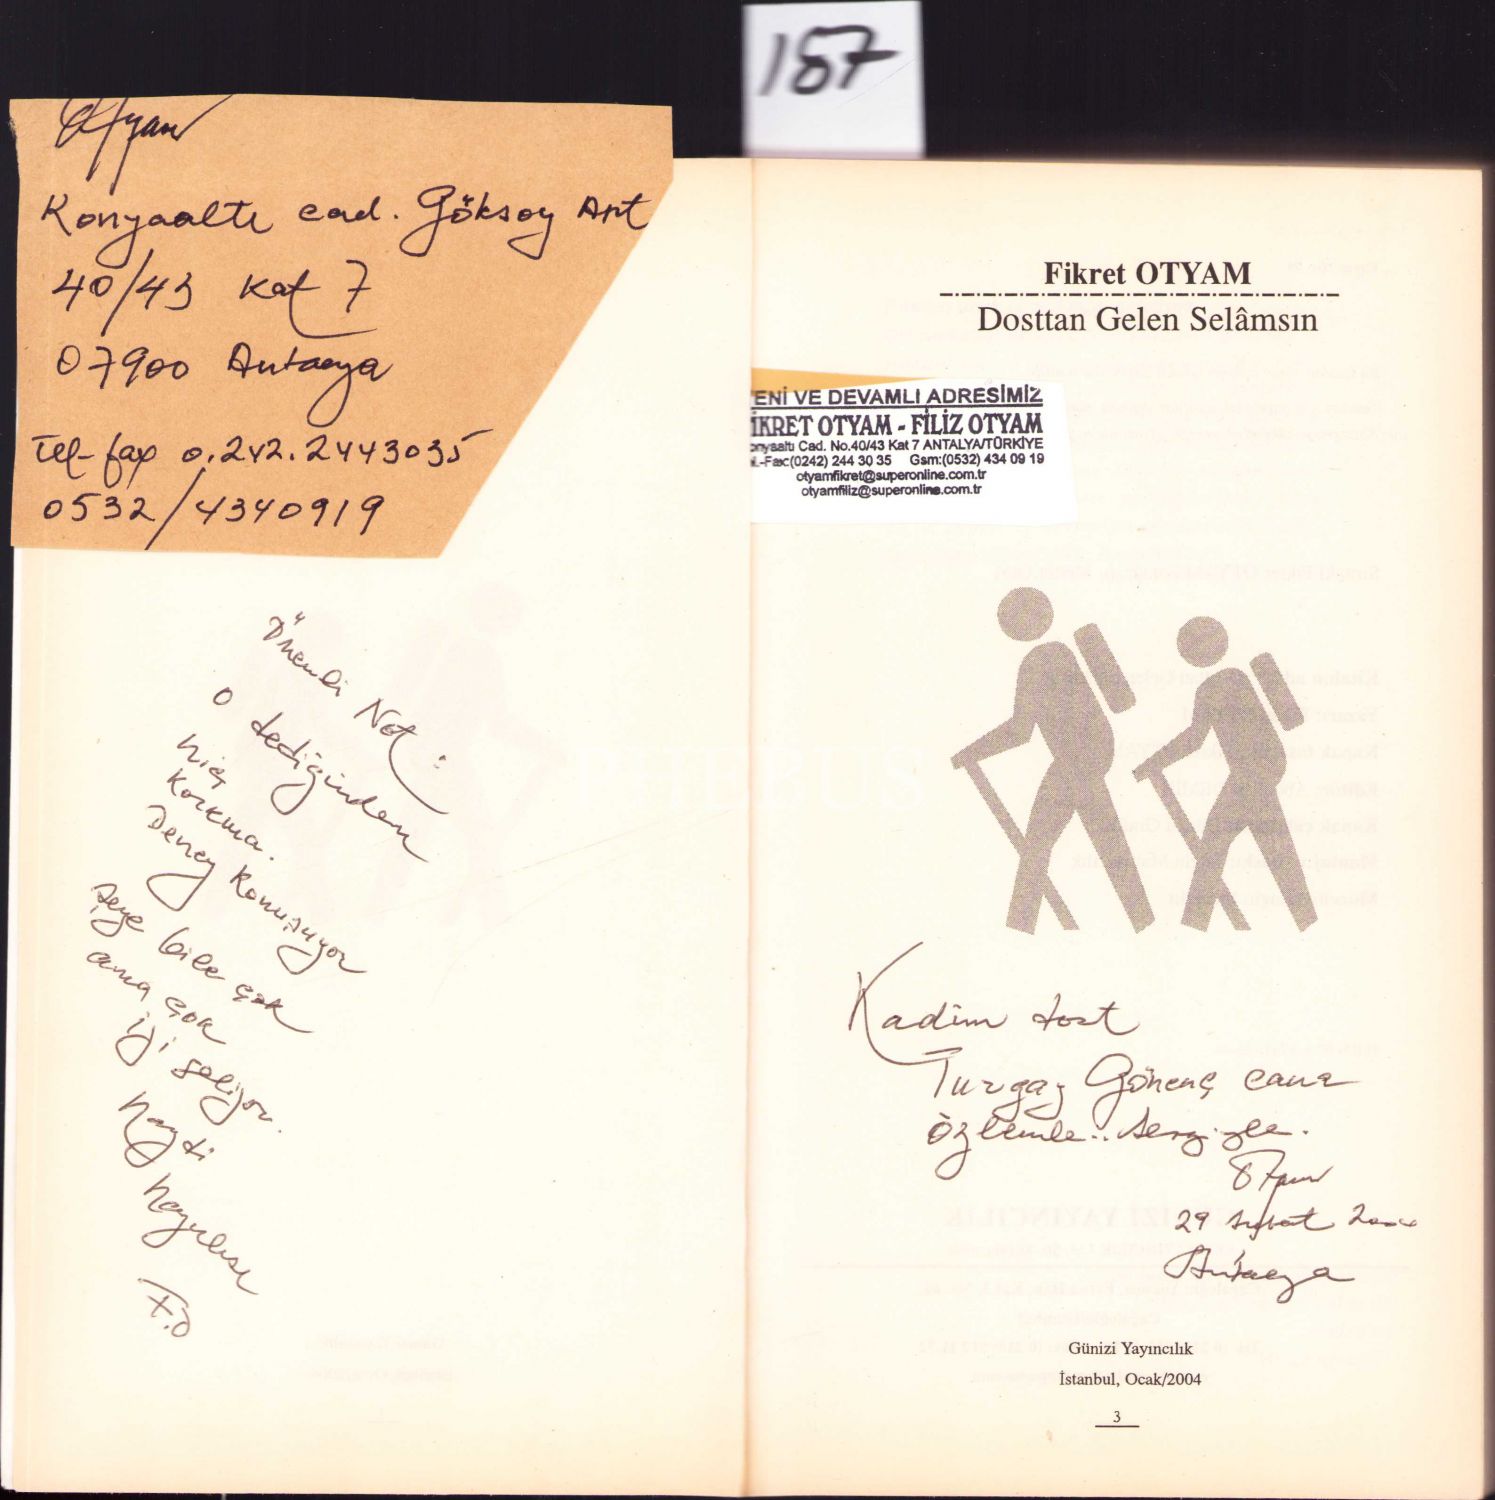 187
Otyam
Konyaaltı cad. Göksoy Apt
40/43 Kat 7
07900 Antalya
Tel-fax 0.242.2443035
0532/4340919
Önemli Not:
O dediğinden
hiç
korkma.
Deney konuşuyor
Şeye bile çok
ama çok
iyi geliyor.
haydi
hayırlısı
F.O
Fikret OTYAM
Dosttan Gelen Selâmsın
ENİ VE DEVAMLI ADRESİMİZ
İKRET OTYAM - FİLİZ OTYAM
onyaaltı Cad. No.40/43 Kat 7 ANTALYA/TÜRKİYE
l.-Fax:(0242) 244 30 35 Gsm:(0532) 434 09 19
otyamfikret@superonline.com.tr
otyamfiliz@superonline.com.tr
PHEBUS
Kadim dost
Turgay Gönenç cana
özlemle.. sevgiyle.
Otyam
29 Şubat 2004
Antalya
Günizi Yayıncılık
İstanbul, Ocak/2004
3